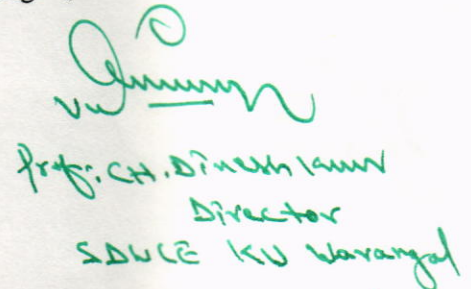 Prof: CH. Dinesh Kumar
Director
SDLCE KU Warangal